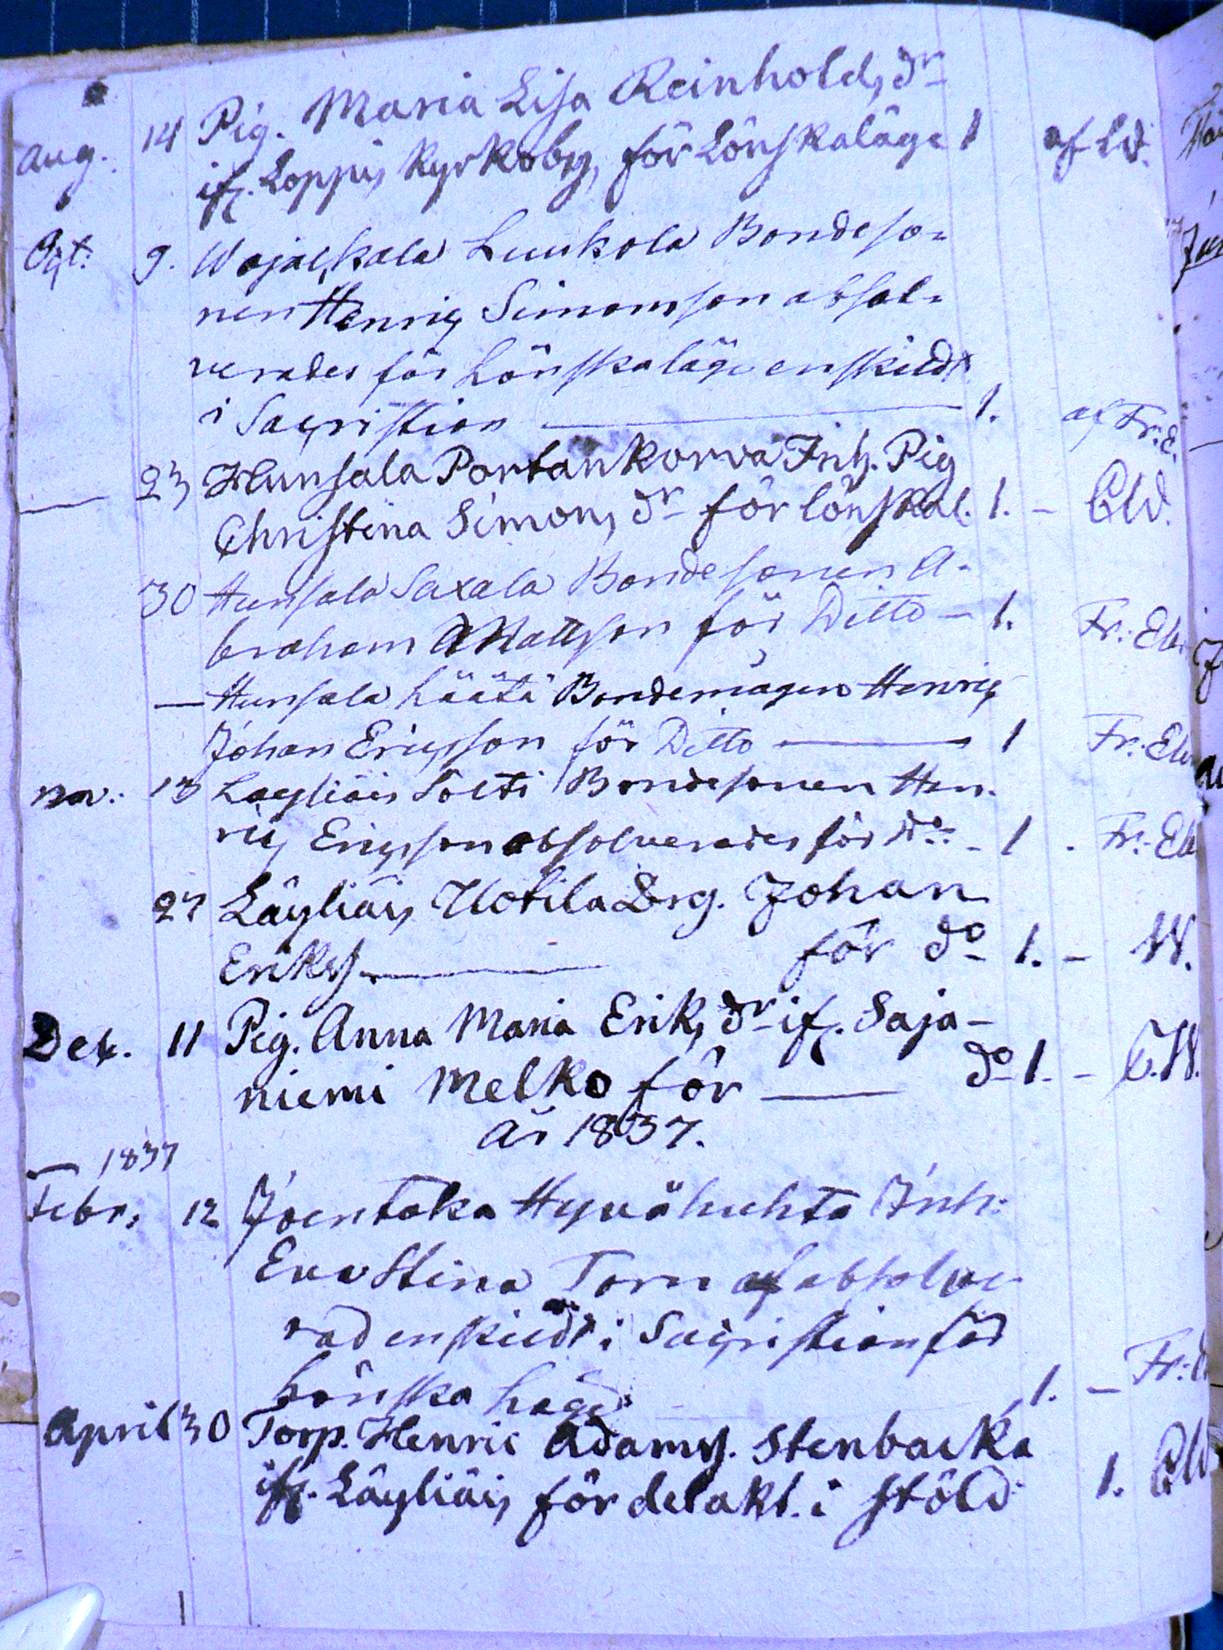 Aug. 14 Pig. Maria Lisa Reinholds dr
ifr. Loppis Kyrkoby, för Lönskaläge 1 af CW.
Oct: 9. Wojaskala Luukola Bondeso=
nen Henric Simonsson absol=
verades för Lönskaläge enskildt
i Sacristian — 1. af Fr: E.
— 23 Hunsala Portankorva Inh. Pig
Christina Simons dr för lönskal. 1. – CW.
30 Hunsala Saxala Bondesonen A=
braham Mattsson för Ditto — 1. Fr: Ele
— Hunsala Läätä Bondemågen Henric
Johan Ericsson för Ditto — 1 Fr: Ele
Nov: 13 Layliäis Torti Bondesonen Hen=
ric Ericsson absolverades för do – 1 . Fr: Ele
27 Läyliäis Uotila Drg. Johan
Eriks. — för do 1. – W.
Dec. 11 Pig. Anna Maria Eriks dr ifr. Saja-
niemi Melko för — do 1. – C.W.
år 1837.
1837
Febr: 12 Joentaka Hyvähuhta Inh:
Eva Stina Torn absolve-
rad enskildt i Sacristian för
Lönska läge 1. – Fr:
April 30 Torp. Henric Adams. Stenbacka
ifr. Läyliäis för delakt. i stöld 1. CW